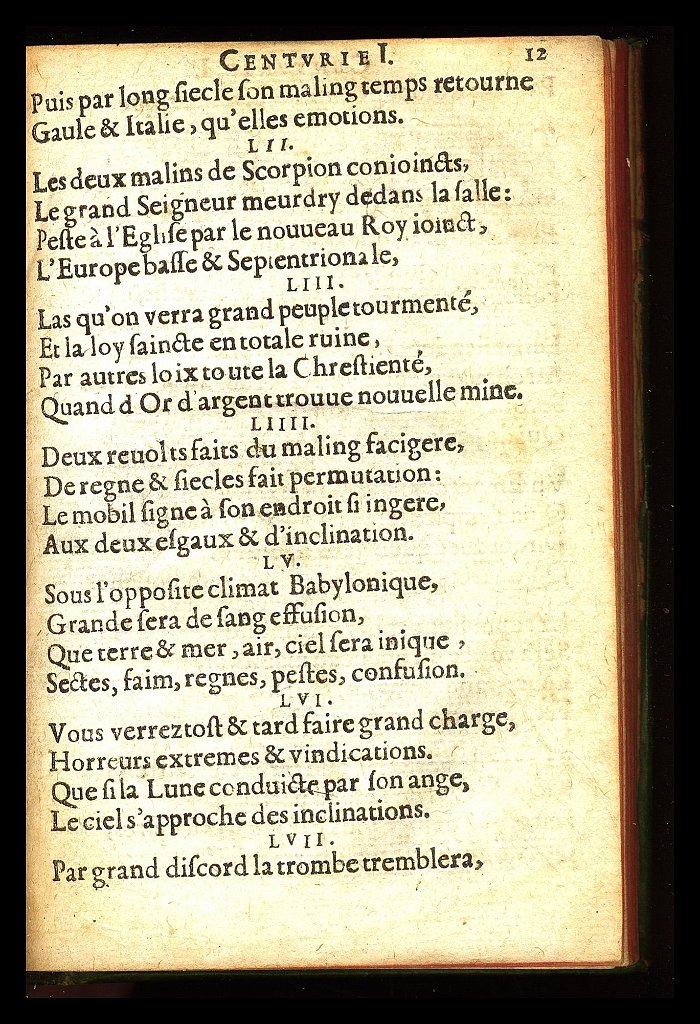 CENTVRIE I. 12
Puis par long ſiecle ſon maling temps retourne
Gaule & Italie, qu'elles emotions.
LII.
Les deux malins de Scorpion conioincts,
Le grand Seigneur meurdry dedans la ſalle:
Peſte à l'Egliſe par le nouueau Roy ioinct,
L'Europe baſſe & Septentrionale,
LIII.
Las qu'on verra grand peuple tourmenté,
Et la loy ſaincte en totale ruine,
Par autres loix toute la Chreſtienté,
Quand d Or d'argent trouue nouuelle mine.
LIIII.
Deux reuolts faits du maling facigere,
De regne & ſiecles fait permutation:
Le mobil ſigne à ſon endroit ſi ingere,
Aux deux eſgaux & d'inclination.
LV.
Sous l'oppoſite climat Babylonique,
Grande ſera de ſang effuſion,
Que terre & mer, air, ciel ſera inique,
Sectes, faim, regnes, peſtes, confuſion.
LVI.
Vous verrez toſt & tard faire grand charge,
Horreurs extremes & vindications.
Que ſi la Lune conduicte par ſon ange,
Le ciel s'approche des inclinations.
LVII.
Par grand diſcord la trombe tremblera,